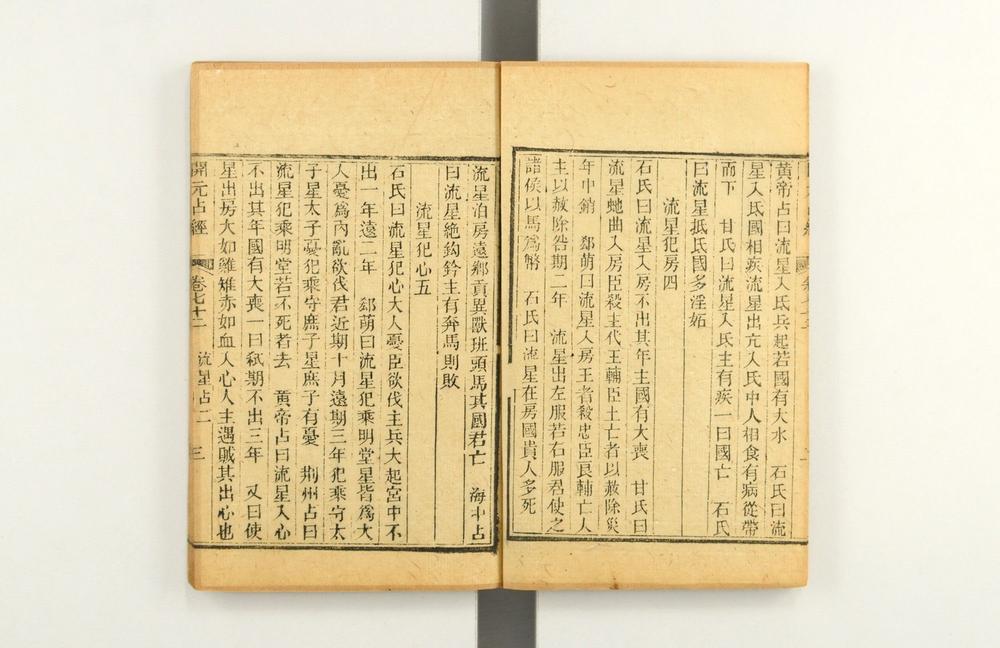 黃帝占曰流星入氐兵起若國有大水　石氏曰流
星入氐國相疾流星出亢入氐中人相食有病從帶
而下　甘氏曰流星入氐主有疾一曰國亡　石氏
曰流星抵氐國多淫妬
流星犯房四
石氏曰流星入房不出其年主國有大喪　甘氏曰
流星虵曲入房臣殺主代王輔臣土亡者以赦除災
年中銷　郄萌曰流星入房王者殺忠臣良輔亡人
主以赦除咎期二年　流星出左服若右服君使之
諸侯以馬爲幣　石氏曰流星在房國貴人多死
流星泊房遠鄉貢異獸班頭馬其國君亡　海中占
曰流星絶鈎鈐主有奔馬則敗
流星犯心五
石氏曰流星犯心大人憂臣欲伐主兵大起宮中不
出一年遠二年　郄萌曰流星犯乘明堂星皆爲大
人憂爲內亂欲伐君近期十月遠期三年犯乘守太
子星太子憂犯乘守庶子星庶子有憂　荆州占曰
流星犯乘明堂若不死者去　黃帝占曰流星入心
不出其年國有大喪一曰弑期不出三年　又曰使
星出房大如雞雉赤如血入心人主遇賊其出心也
開元占經　卷七十二　流星占二　三